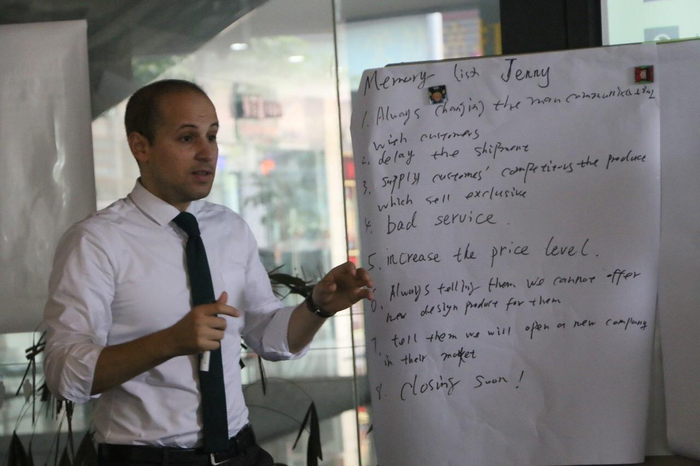 Memory list Jenny
1. Always changing the man communicating
with customers
2. delay the shipment
3. supply customes' competitors the produce
which sell exclusive
4. bad service.
5. increase the price level.
6. Always telling them we cannot offer
new design product for them
7. tell them we will open a new company
in their market
8. closing soon!